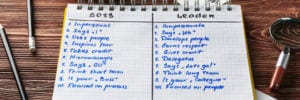 BOSS
1. Impersonal
2. Says „I"
3. Uses people
4. Inspires fear
5. Takes credit
6. Micromanages
7. Says
8. Think short term
9. Is your „Boss"
10. Focused on process
LEADER
1. Compassionate
2. Says
3. Develops people
4. Earns respect
5. Gives credit
6. Delegates
7. Says „Let's go!"
8. Think long term
9. Is your „Colleague"
10. Focused on people